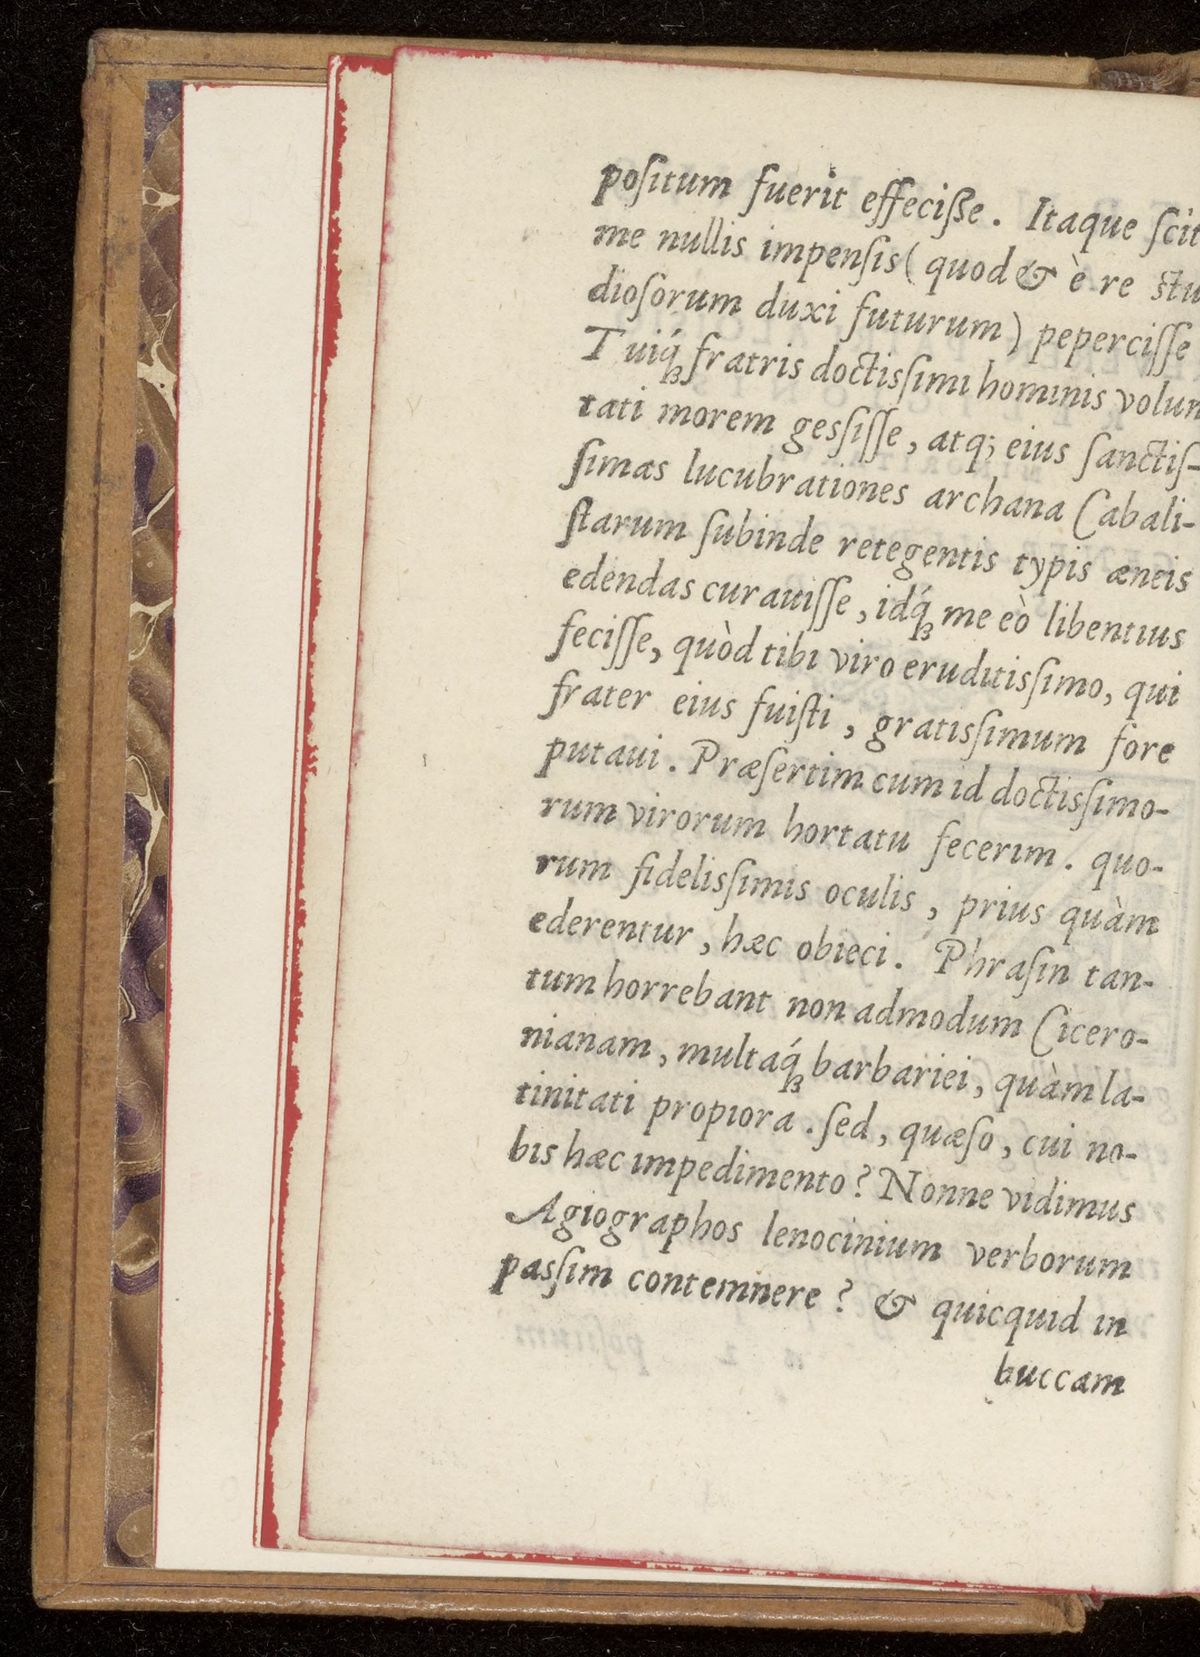 poſitum fuerit effeciſſe. Itaque ſcit
me nullis impenſis (quod & è re ſtu
dioſorum duxi futurum) peperciſſe
Tuiq́ꝫ fratris doctiſſimi hominis volun
tati morem geſſiſſe, atq; eius ſanctiſ-
ſimas lucubrationes archana Cabali-
ſtarum ſubinde retegentis typis æneis
edendas curauiſſe, idq́ꝫ me eò libentius
feciſſe, quòd tibi viro eruditiſſimo, qui
frater eius fuiſti, gratiſſimum fore
putaui. Præſertim cum id doctiſſimo-
rum virorum hortatu fecerim. quo-
rum fideliſſimis oculis, prius quàm
ederentur, hæc obieci. Phraſin tan-
tum horrebant non admodum Cicero-
nianam, multaq́ꝫ barbariei, quàm la-
tinitati propiora. ſed, quæſo, cui no-
bis hæc impedimento? Nonne vidimus
Agiographos lenocinium verborum
paſſim contemnere? & quicquid in
buccam